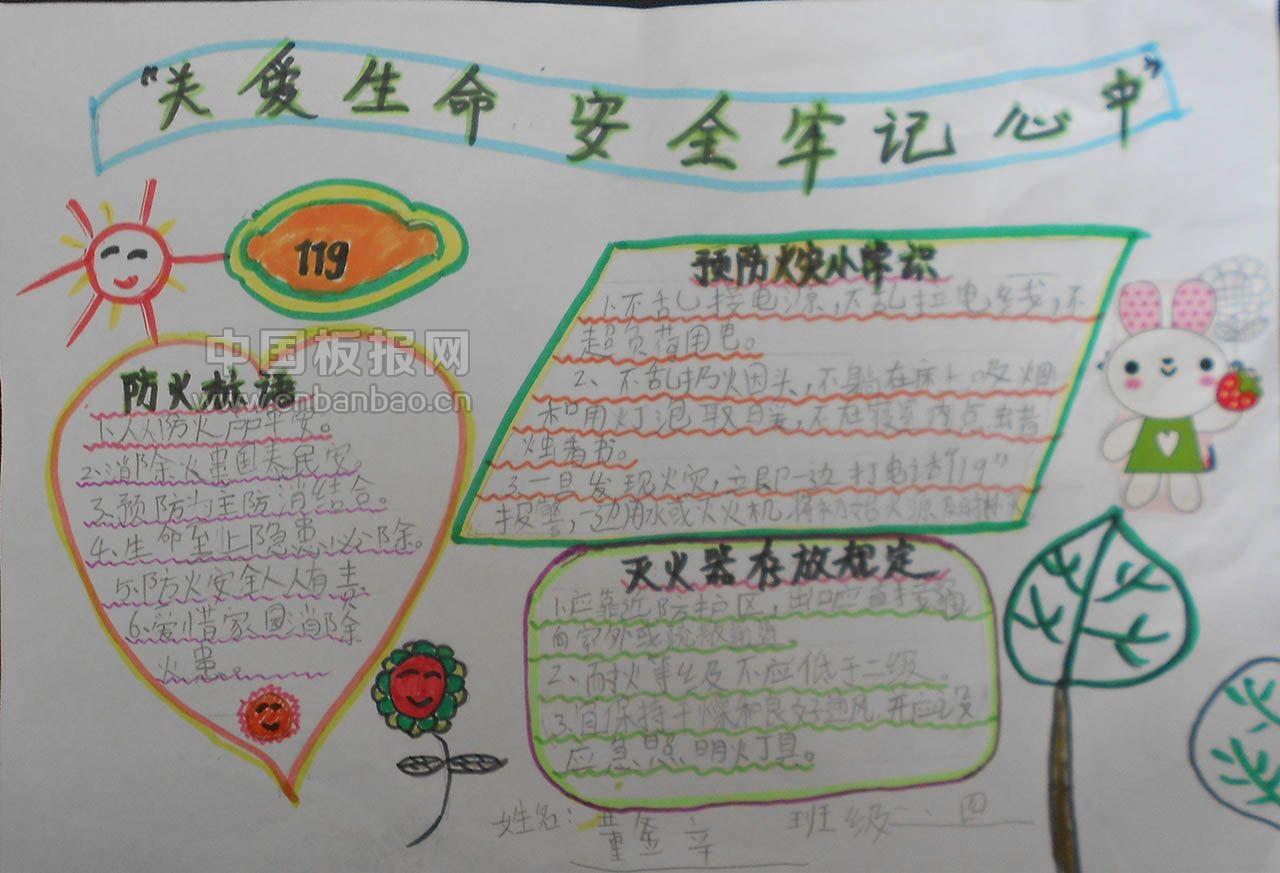 “关爱生命 安全牢记心中”
119
中国板报网
防火标语
1、人人防火户户平安。
2、消除火患国泰民安。
3、预防为主防消结合。
4、生命至上隐患必除。
5、防火安全人人有责。
6、爱惜家园消除
火患。
预防火灾小常识
1、不乱接电源,不乱拉电线,不
超负荷用电。
2、不乱扔火因头,不躺在床上吸烟
和用灯泡取暖,不在寝室内点蜡
烛看书。
3、一旦发现火灾,立即一边打电话“119”
报警,一边用水或灭火机将初始火源
灭火器存放规定
1、应靠近防护区,出口应直接通
向室外或疏散通道。
2、耐火等级不应低于二级。
3、宜保持干燥和良好通风,并应设
应急照明灯具。
姓名: 班级 四